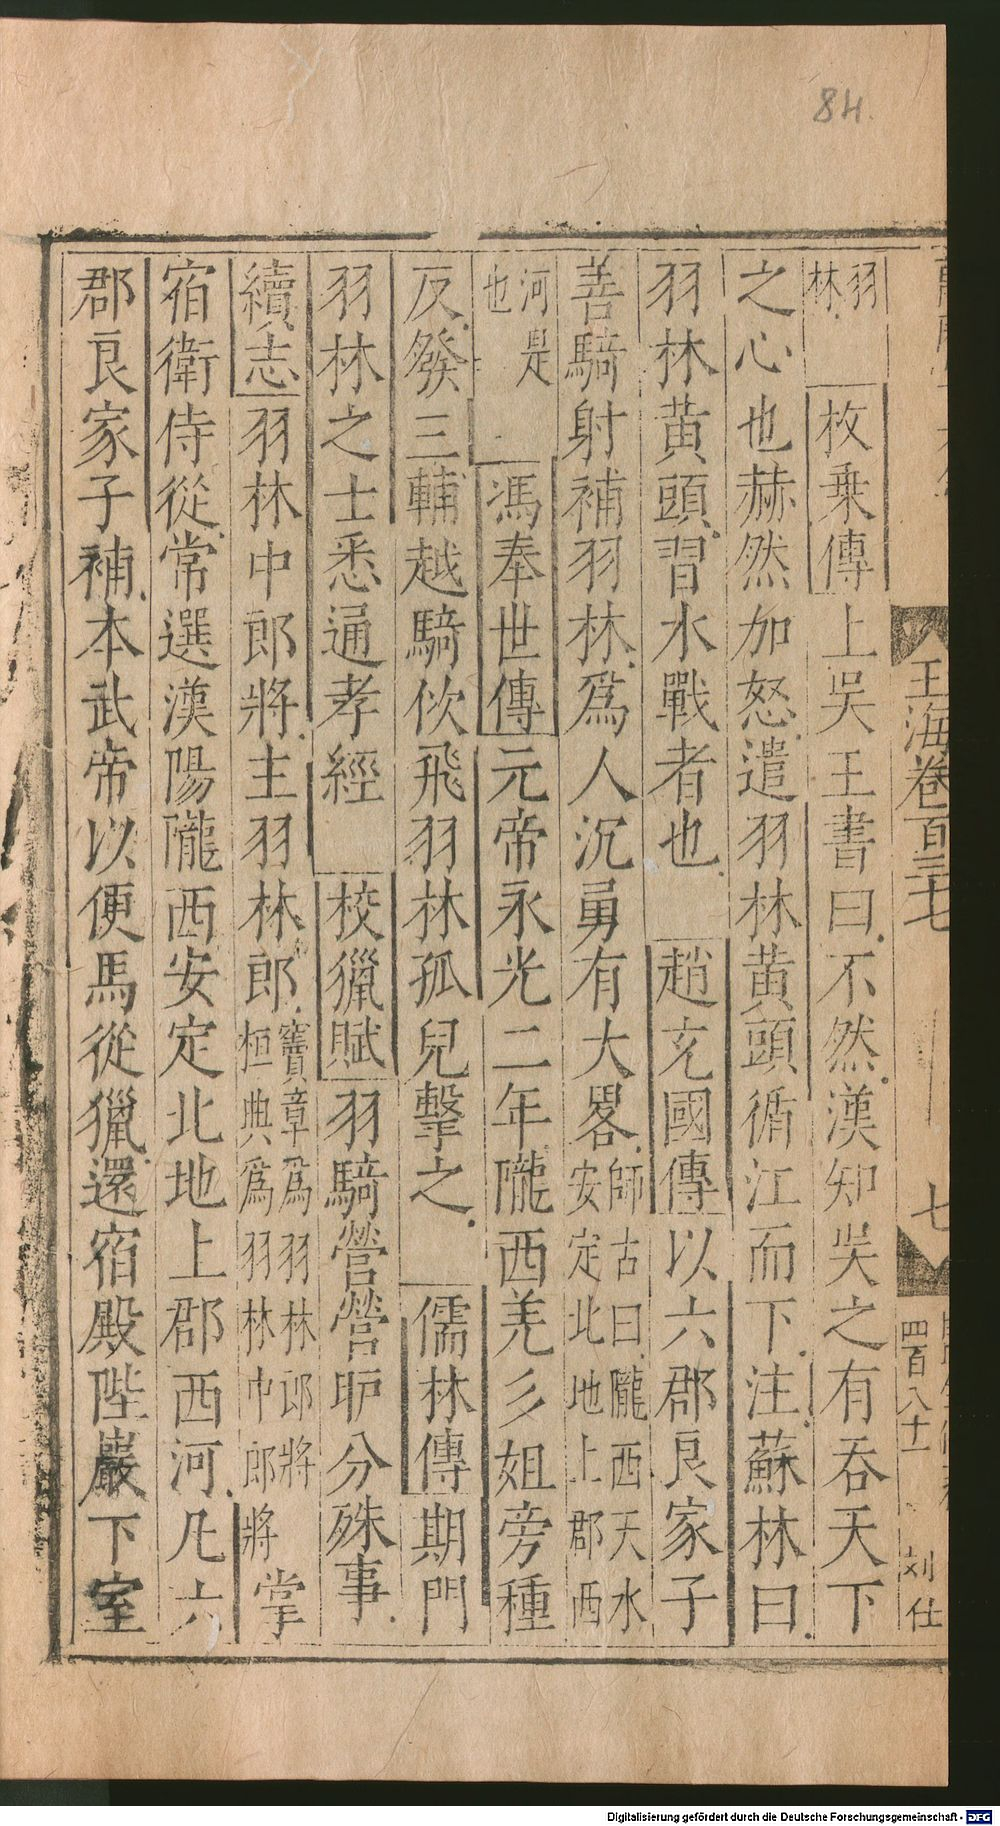 84
玉海卷百三七
七
四百八十一
刘仕
羽林 枚乗傳 上吳王書曰不然漢知吳之有吞天下
之心也赫然加怒遣羽林黄頭循江而下注蘇林曰
羽林黄頭習水戰者也 趙充國傳 以六郡良家子
善騎射補羽林爲人沉勇有大畧師古曰隴西天水安定北地上郡西
河是也 馮奉世傳 元帝永光二年隴西羌彡姐旁種
反發三輔越騎佽飛羽林孤兒擊之 儒林傳 期門
羽林之士悉通孝經 校獵賦 羽騎營營昈分殊事
續志 羽林中郎將主羽林郎竇章爲羽林郎將桓典爲羽林中郎將掌
宿衛侍從常選漢陽隴西安定北地上郡西河凡六
郡良家子補本武帝以便馬從獵還宿殿陛巖下室
Digitalisierung gefördert durch die Deutsche Forschungsgemeinschaft - DFG